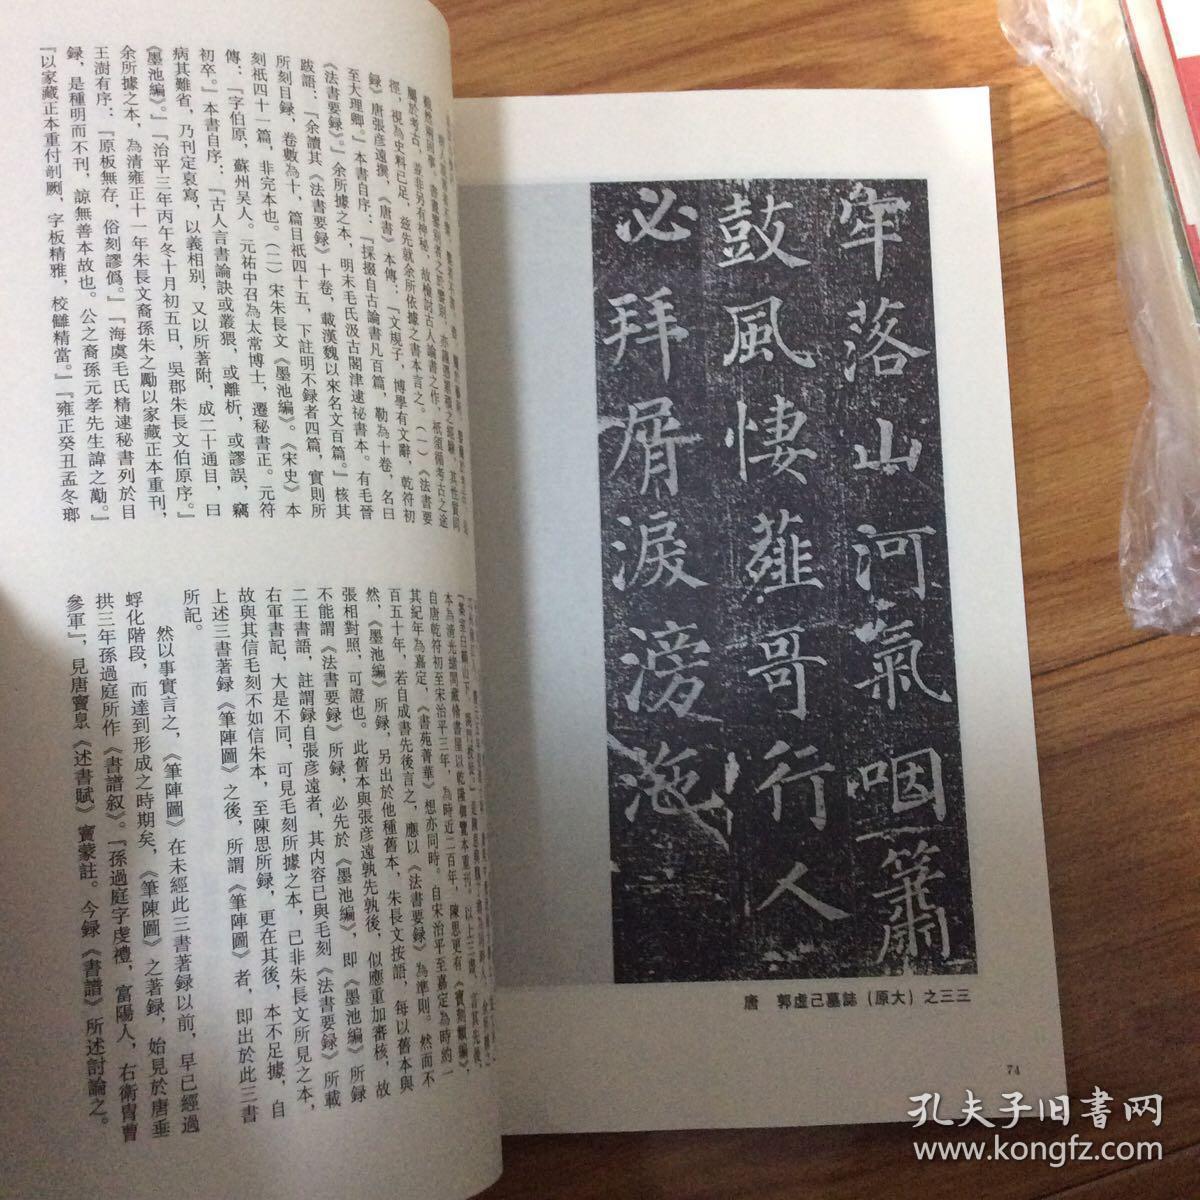 牢落山河氣咽簫
鼓風悽薤哥行人
必拜屑淚滂沲
唐 郭虛己墓誌(原大)之三三
74
徑，視為史料已足，茲先就余所依據之書本言之。(一)《法書要
錄》唐張彥遠撰，《唐書》本傳：『文規子，博學有文辭，乾符初
至大理卿。』本書自序：『採掇自古論書凡百篇，勒為十卷，名曰
《法書要錄》。』余所據之本，明末毛氏汲古閣津逮祕書本。有毛晉
跋語：『余讀其《法書要錄》十卷，載漢魏以來名文百篇。』核其
所刻目錄，卷數為十，篇目祇四十五，下註明不録者四篇，實則所
刻祇四十一篇，非完本也。(二)宋朱長文《墨池編》。《宋史》本
傳：『字伯原，蘇州吳人。元祐中召為太常博士，遷秘書正。元符
初卒。』本書自序：『古人言書論訣或叢猥，或離析，或謬誤，竊
病其難省，乃刊定裒寫，以義相别，又以所著附，成二十通目，曰
《墨池編》。』『治平三年丙午冬十月初五日，吳郡朱長文伯原序。』
余所據之本，為清雍正十一年朱長文裔孫朱之勵以家藏正本重刊，
王澍有序：『原板無存，俗刻謬僞。』『海虞毛氏精逮秘書列於目
録，是種明而不刊，諒無善本故也。公之裔孫元孝先生諱之勵。』
『以家藏正本重付剞劂，字板精雅，校讎精當。』『雍正癸丑孟冬瑯
本為清光緒間藏脩書屋以乾隆
自唐乾符初至宋治平三年，為時近二百年，陳思更有《寶刻叢編》，
其紀年為嘉定，《書苑菁華》想亦同時。自宋治平至嘉定為時約一
百五十年，若自成書先後言之，應以《法書要録》為準則。然而不
然，《墨池編》所録，另出於他種舊本，朱長文按語，每以舊本與
張相對照，可證也。此舊本與張彥遠孰先孰後，似應重加審核，故
不能謂《法書要録》所録，必先於《墨池編》，即《墨池編》所録
二王書語，註謂録自張彥遠者，其内容已與毛刻《法書要録》所載
右軍書記，大是不同，可見毛刻所據之本，已非朱長文所見之本，
故與其信毛刻不如信朱本，至陳思所録，更在其後，本不足據，自
上述三書著録《筆陣圖》之後，所謂《筆陣圖》者，即出於此三書
所記。
然以事實言之，《筆陣圖》在未經此三書著録以前，早已經過
蜉化階段，而達到形成之時期矣，《筆陳圖》之著録，始見於唐垂
拱三年孫過庭所作《書譜叙》。『孫過庭字虔禮，富陽人，右衛胄曹
參軍』，見唐竇臮《述書賦》竇蒙註。今録《書譜》所述討論之。
孔夫子旧書网
www.kongfz.com